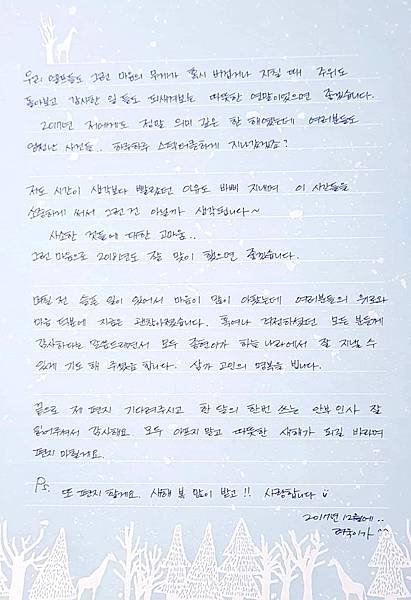 우리 엘프들도 그런 마음의 무게가 혹시 버겁거나 지칠 때 주위도
돌아보고 감사한 일들도 되새겨보는 따뜻한 연말이었으면 좋겠습니다.
2017년 저에게도 정말 의미 깊은 한 해였는데 여러분들도
엄청난 사건들.. 하루하루 스펙타클하게 지나갔겠죠?
저도 시간이 생각보다 빨랐던 이유도 바삐 지내며 이 시간들을
소중하게 써서 그런 건 아닐까 생각됩니다~
사소한 것들에 대한 고마움..
그런 마음으로 2018년도 잘 맞이 했으면 좋겠습니다.
며칠 전 슬픈 일이 있어서 마음이 많이 아팠는데 여러분들의 위로와
마음 덕분에 지금은 괜찮아졌습니다. 혹여나 걱정하셨던 모든 분들께
감사하다는 말씀드리면서 모두 종현이가 하늘 나라에서 잘 지낼 수
있게 기도 해 주었음 합니다. 삼가 고인의 명복을 빕니다.
끝으로 제 편지 기다려주시고 한 달의 한번 쓰는 안부 인사 잘
읽어주셔서 감사해요. 모두 아프지 말고 따뜻한 새해가 되길 바라며
편지 마칠게요.
Ps. 또 편지 할게요. 새해 복 많이 받고!! 사랑합니다
2017년 12월에..
려욱이가 ^^